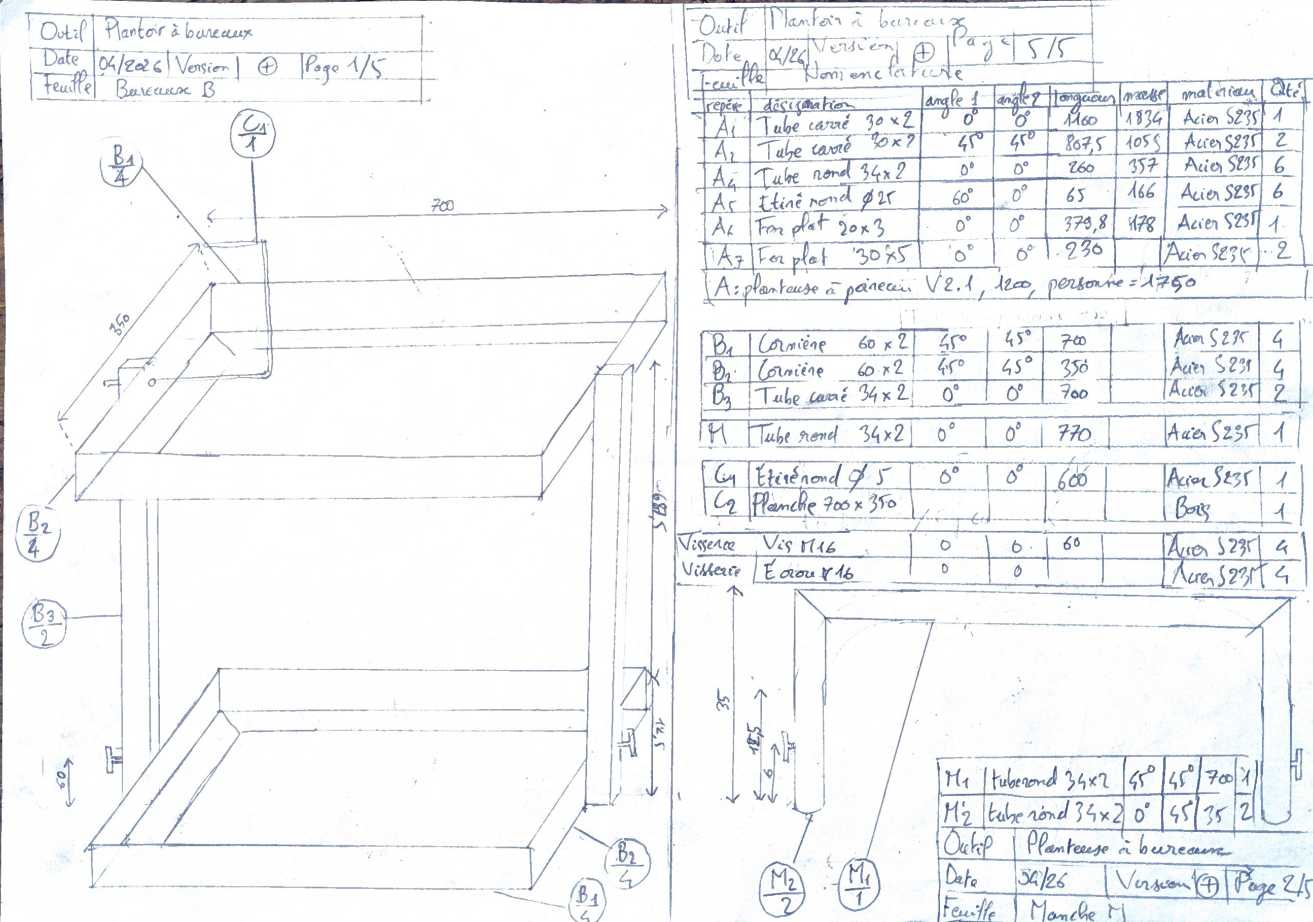 Outil Plantoir à bureaux
Date 04/2026 Version Page 1/5
Feuille Bureaux B
C1/1
B1/4
700
350
B2/4
B3/2
687,5
12,5
60
B2/4
B1/4
Outil Plantoir à bureaux
Date 04/26 Version Page 5/5
Feuille Nomenclature
repère désignation angle 1 angle 2 longueur masse matériau Qté
A1 Tube carré 30×2 0° 0° 1160 1834 Acier S235 1
A2 Tube carré 30×2 45° 45° 807,5 1055 Acier S235 2
A4 Tube rond 34×2 0° 0° 260 357 Acier S235 6
A5 Etiré rond Ø25 60° 0° 65 166 Acier S235 6
A6 Fer plat 20×3 0° 0° 379,8 178 Acier S235 1
A7 Fer plat 30×5 0° 0° 230 Acier S235 2
A: planteuse à V2.1, 1200, personne = 1750
B1 Cornière 60×2 45° 45° 700 Acier S235 4
B2 Cornière 60×2 45° 45° 350 Acier S235 4
B3 Tube carré 34×2 0° 0° 700 Acier S235 2
M Tube rond 34×2 0° 0° 770 Acier S235 1
C1 Etiré rond Ø 5 0° 0° 600 Acier S235 1
C2 Planche 700×350 Bois 1
Visserie Vis M16 0 0 60 Acier S235 4
Visserie Écrou 16 0 0 Acier S235 4
35
18,5
6
M1 tube rond 34×2 45° 45° 700 1
M2 tube rond 34×2 0° 45° 35 2
M2/2
M1/1
Outil Planteuse à bureaux
Date 04/26 Version Page 2/5
Feuille Manche M